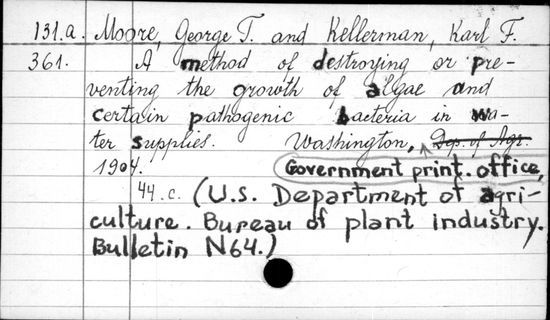 131.a. Moore, George T. and Kellerman, Karl F.
361. A method of destroying or pre-
venting the growth of algae and
certain pathogenic bacteria in wa-
ter supplies. Washington, Dep. of Agr.
1904. Government print. office,
44.c. (U.S. Department of agri-
culture. Bureau of plant industry.
Bulletin N64.)